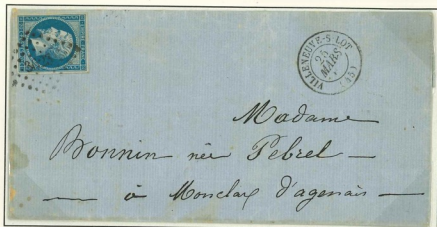 VILLENEUVE-S-LOT
25
MARS
(45)
Madame
Bonnin née Pebrel —
— à Monclar d'agenais —